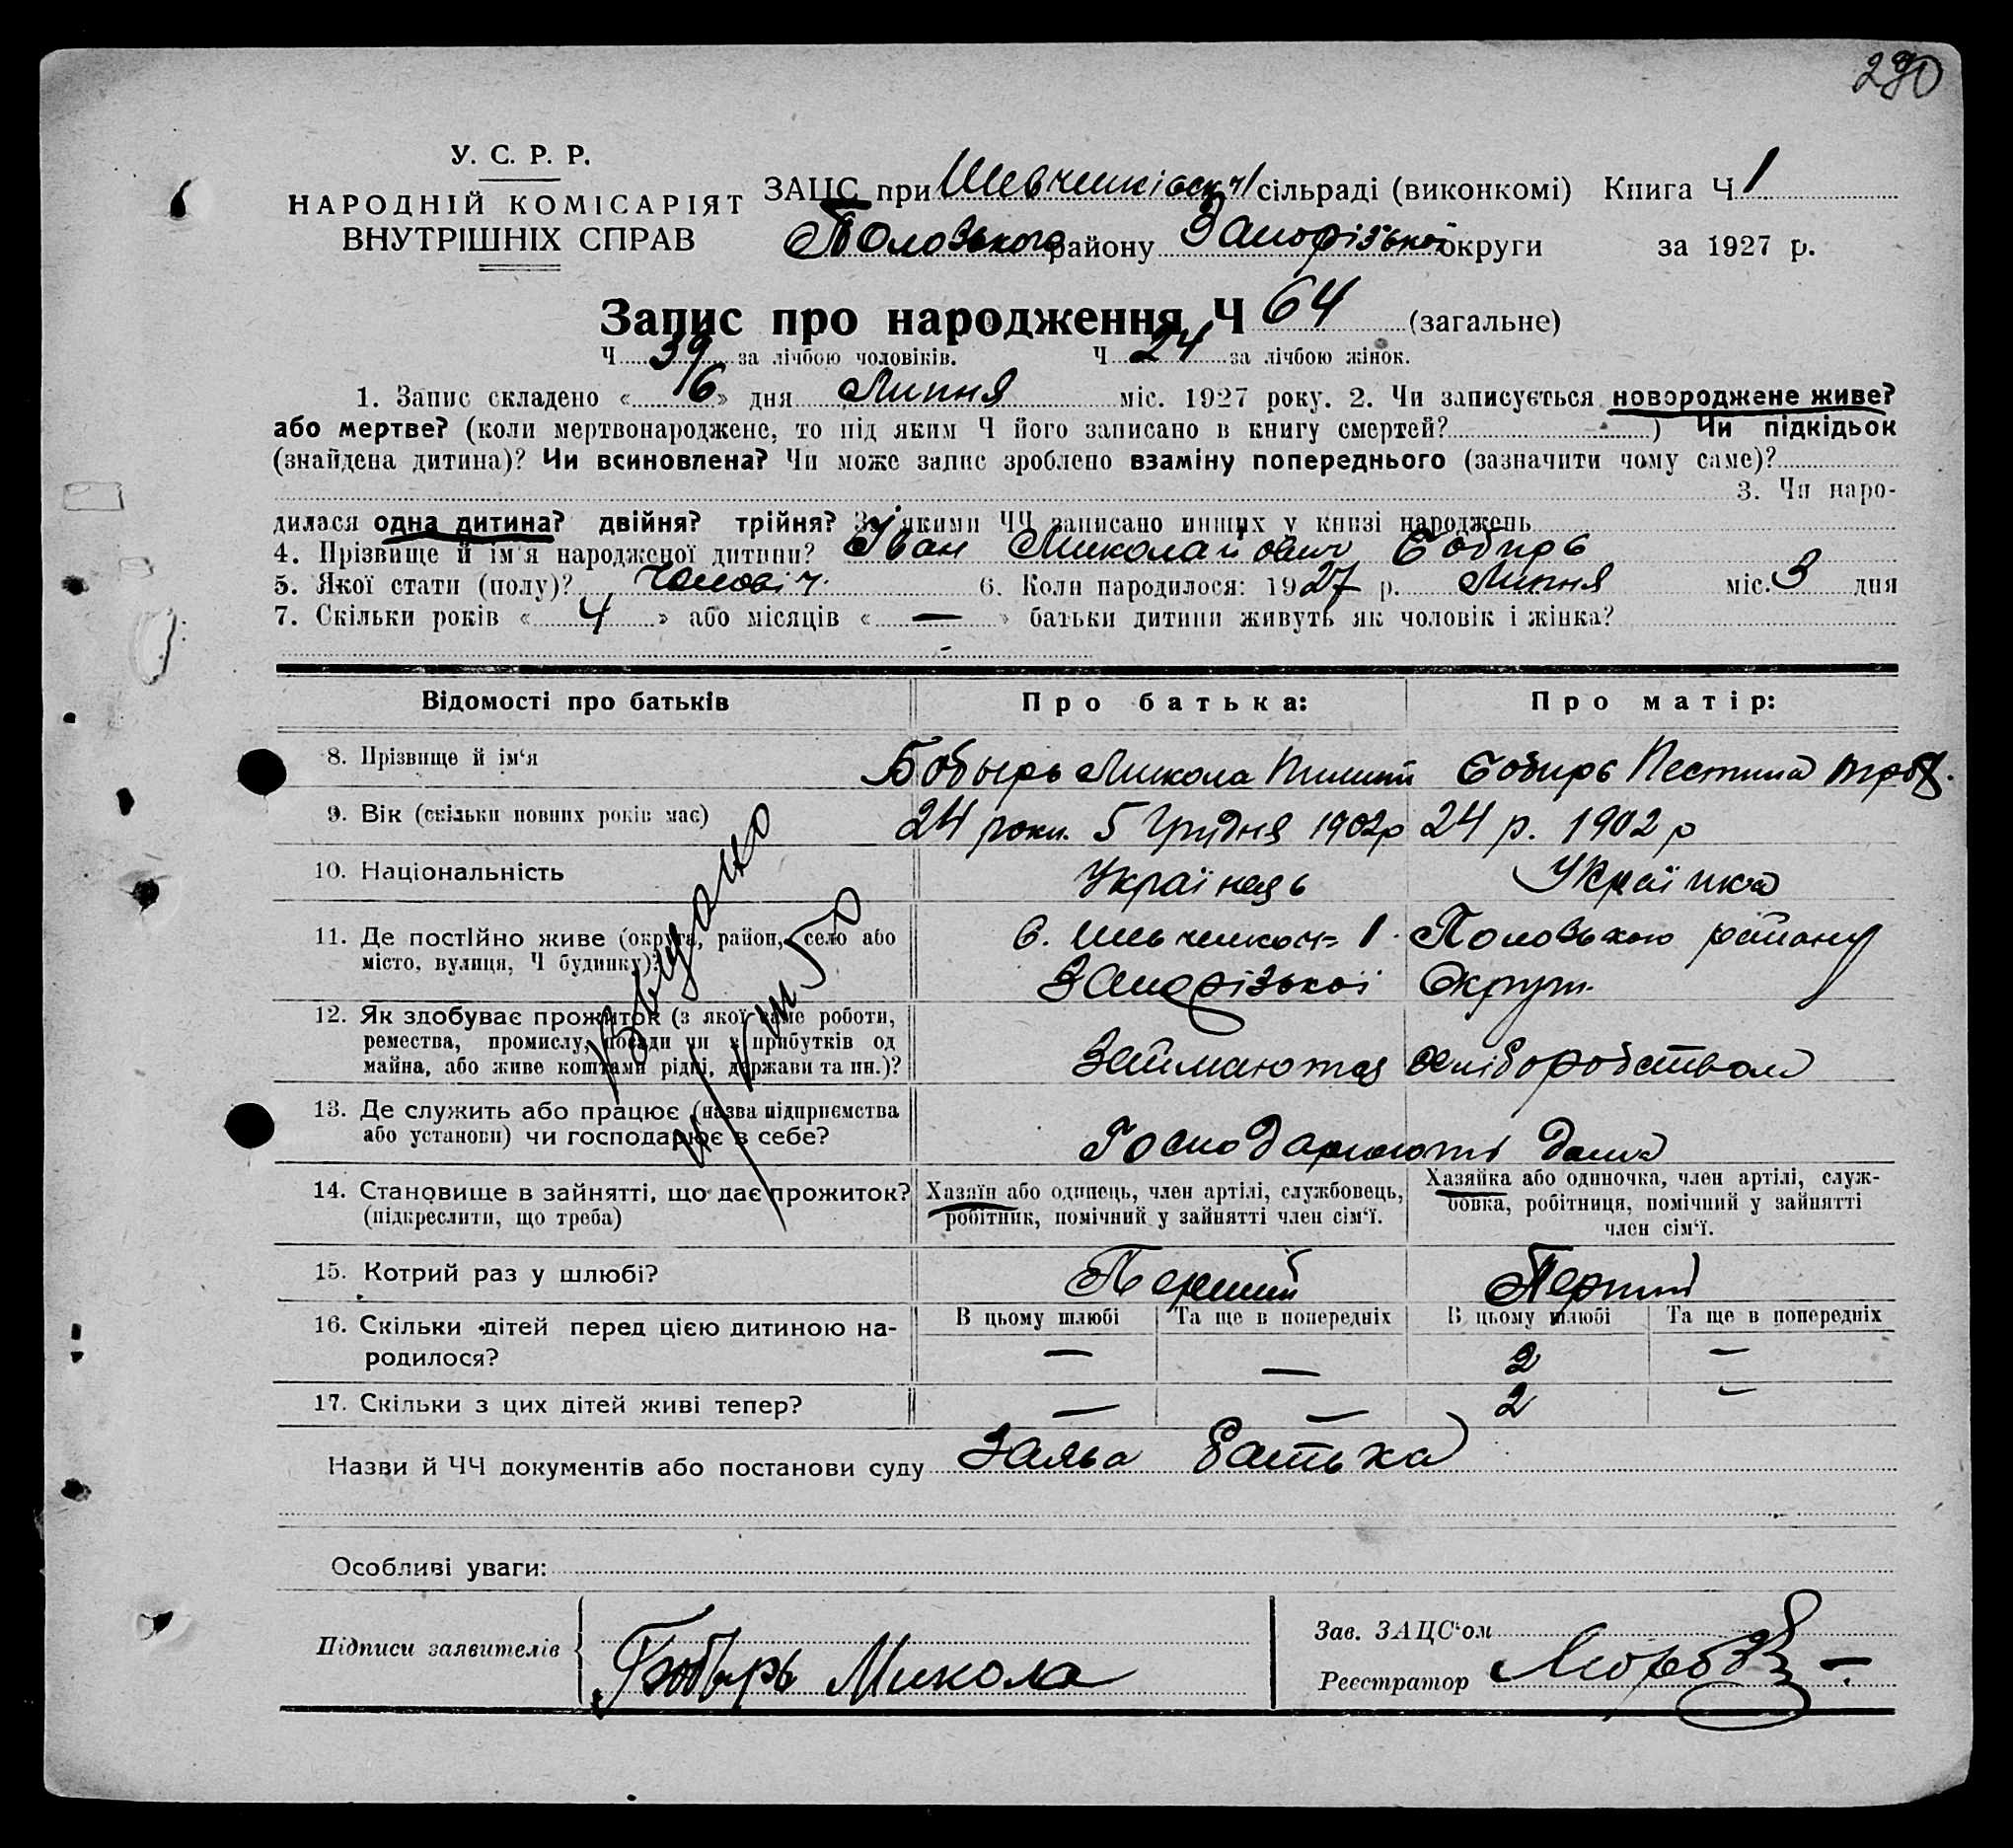 290
У. С. Р. Р.
НАРОДНІЙ КОМІСАРІЯТ
ВНУТРІШНІХ СПРАВ
ЗАЦС при Шевченківск ч1 сільраді (виконкомі) Книга Ч 1
Положського району Запорізької округи за 1927 р.
Запис про народження Ч 64 (загальне)
Ч 39 за лічбою чоловіків. Ч 24 за лічбою жінок.
1. Запис складено « 16 » дня Липня міс. 1927 року. 2. Чи записується новороджене живе?
або мертве? (коли мертвонароджене, то під яким Ч його записано в книгу смертей? ) Чи підкідьок
(знайдена дитина)? Чи всиновлена? Чи може запис зроблено взаміну попереднього (зазначити чому саме)?
3. Чи наро-
дилася одна дитина? двійня? трійня? За якими ЧЧ записано инших у книзі народжень
4. Прізвище й ім'я народженої дитини? Іван Миколайович Бобирь
5. Якої стати (полу)? Чоловіч. 6. Коли народилося: 1927 р. Липня міс. 3 дня
7. Скільки років « 4 » або місяців « — » батьки дитини живуть як чоловік і жінка?
Відомості про батьків Про батька: Про матір:
8. Прізвище й ім'я Бобырь Микола Бобирь
9. Вік (скільки повних років має) 24 роки. 5 Грудня 1902р 24 р. 1902 р
10. Національність Українець Українка
11. Де постійно живе (округа, район, село або с. Шевченко ч= 1. Положського району
місто, вулиця, Ч будинку)? Запорізької Округи.
12. Як здобуває прожиток (з якої саме роботи,
ремества, промислу, посади чи з прибутків од Займаються хліборобством
майна, або живе коштами рідні, держави та ин.)?
13. Де служить або працює (назва підприємства
або установи) чи господарює в себе? Господарюють дома
14. Становище в зайнятті, що дає прожиток? Хазяїн або одинець, член артілі, службовець, Хазяйка або одиночка, член артілі, служ-
(підкреслити, що треба) робітник, помічний у зайнятті член сім'ї. бовка, робітниця, помічний у зайнятті
член сім'ї.
15. Котрий раз у шлюбі? Перший Перший
16. Скільки дітей перед цією дитиною на- В цьому шлюбі Та ще в попередніх В цьому шлюбі Та ще в попередніх
родилося? — — 2 —
17. Скільки з цих дітей живі тепер? — — 2 —
Назви й ЧЧ документів або постанови суду Заява батька
Особливі уваги:
Підписи заявителів Бобырь Микола
Зав. ЗАЦС'ом
Реєстратор